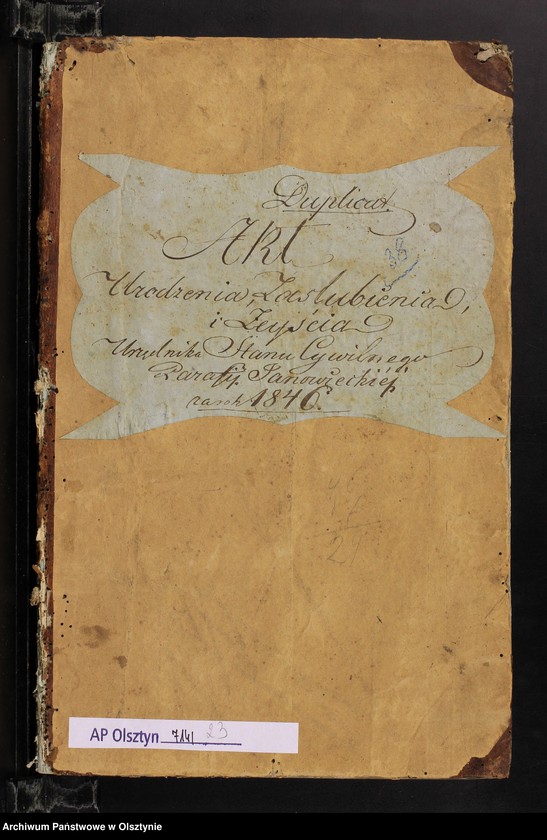 Duplicat.
Akt
38
Urodzenia, Zaslubienia,
i Zeyścia
Urzędnika Stanu Cywilnego
Parafii Janowieckiéj
za rok 1846.
24
AP Olsztyn 7141 23
Archiwum Państwowe w Olsztynie